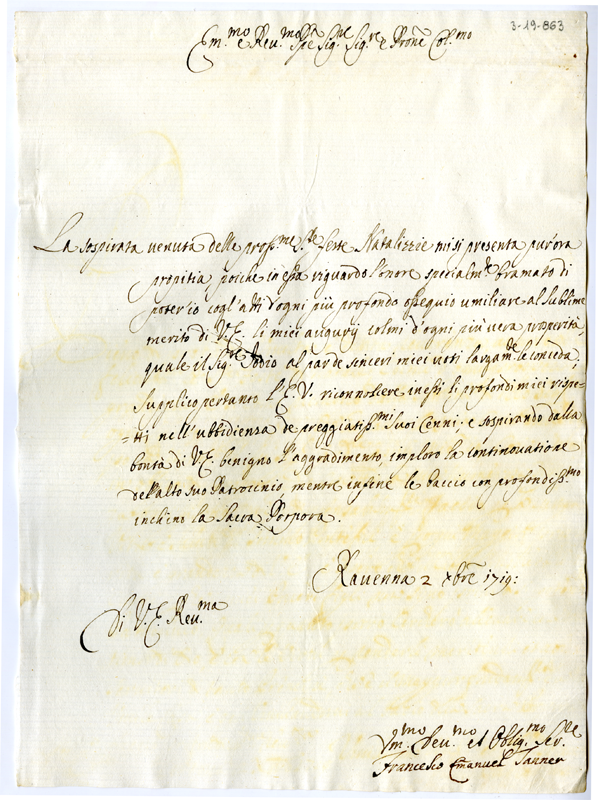 3-19-863
Em.mo e Reu.mo Sig.re Sig.re e Prone Col.mo
La sospirata venuta delle pross.me S.te feste Natalizzie mi si presenta pur'ora
propitia, poiche in essa riguardo l'onore specialm.te bramato di
poter'io cogl'atti d'ogni più profondo ossequio umiliare al sublime
merito di V.E. li miei augurij colmi d'ogni più vera prosperità,
quale il Sig.re Iddio al par de sinceri miei voti largam.te le conceda,
supplico pertanto l'E.V. riconnoscere in essi li profondi miei rispe=
=tti nell'ubbidienza de preggiatiss.mi suoi Cenni; e sospirando dalla
bontà di V.E. benigno l'aggradimento imploro la continovatione
dell'alto suo Patrocinio, mentre infine le baccio con profondiss.mo
inchino la Sacra Porpora.
Ravenna 2 Xbre 1719:
Di V.E. Reu.ma
Vm.mo Deu.mo et Oblig.mo Ser.re
Francesco Emanuel Tanner